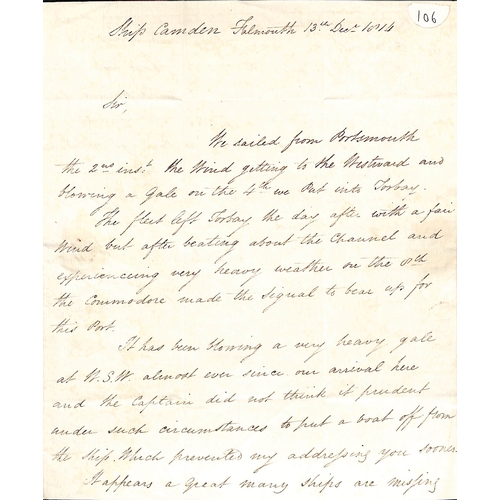 106
Ship Camden Falmouth 13th Decr 1814
Sir,
We sailed from Portsmouth
the 2nd inst. the Wind getting to the Westward and
blowing a Gale on the 4th we Put into Torbay.
The fleet left Torbay the day after with a fair
Wind but after beating about the Channel and
experiencing very heavy weather on the 8th
the Commodore made the signal to bear up for
this Port.
It has been blowing a very heavy gale
at W.S.W. almost ever since our arrival here
and the Captain did not think it prudent
under such circumstances to put a boat off from
the Ship. Which prevented my addressing you sooner.
It appears a great many ships are missing